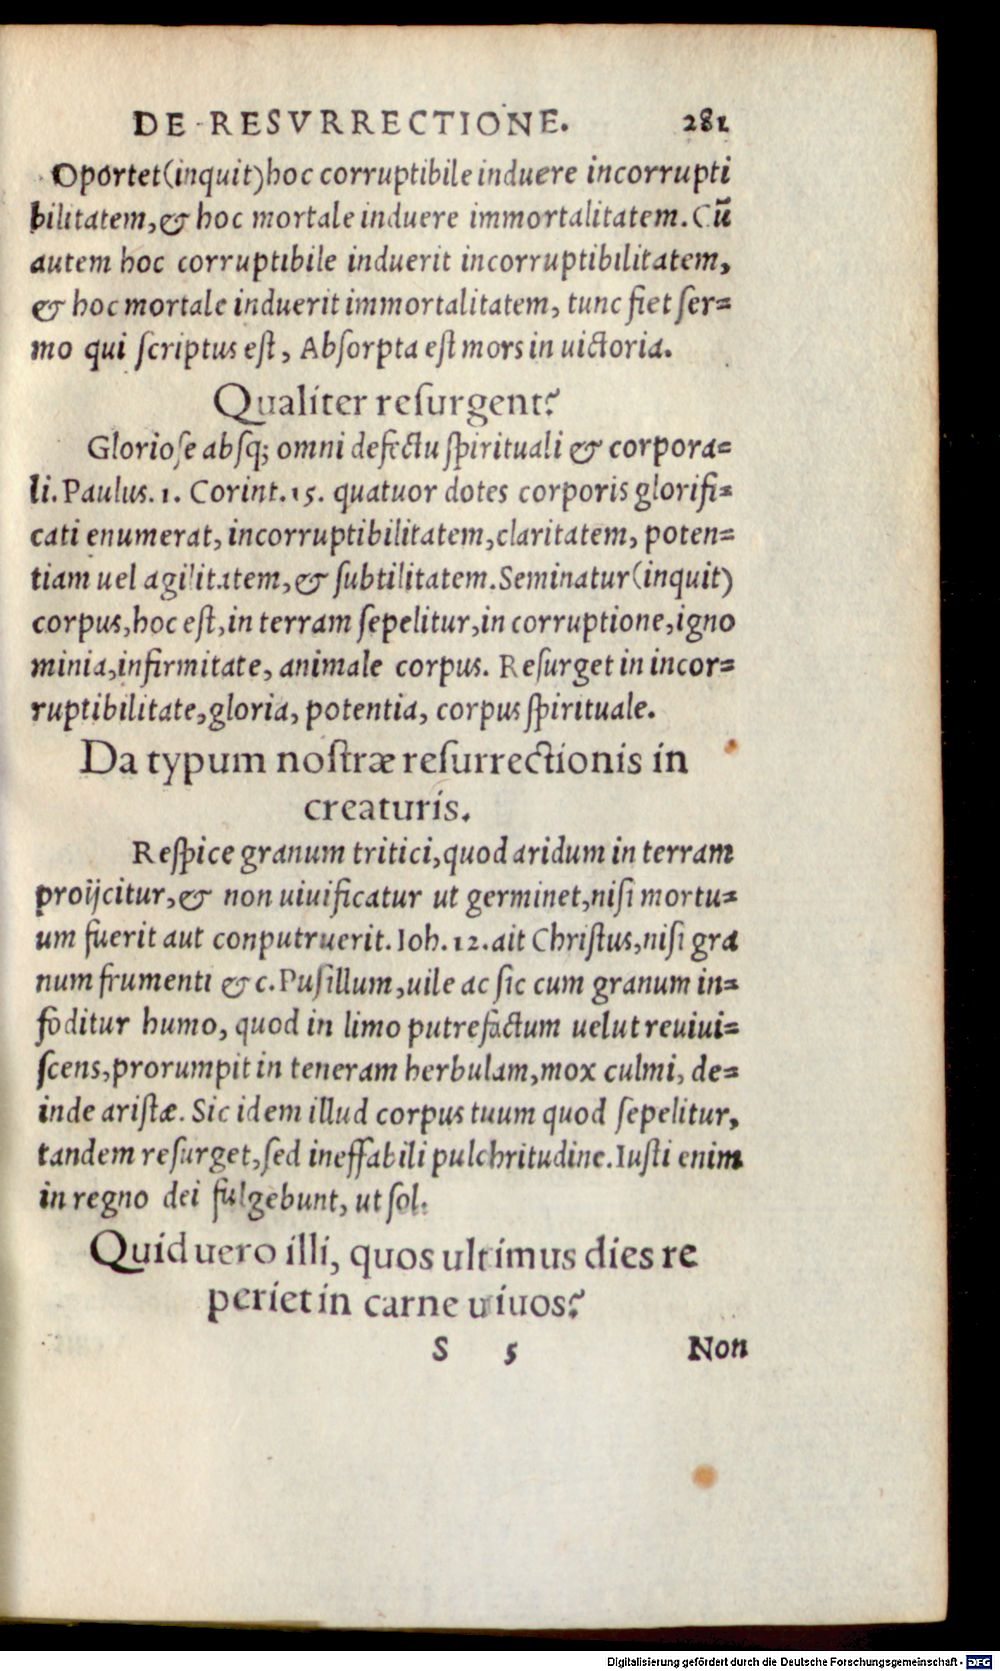 DE RESVRRECTIONE. 281
Oportet(inquit)hoc corruptibile induere incorrupti
bilitatem,& hoc mortale induere immortalitatem. Cū
autem hoc corruptibile induerit incorruptibilitatem,
& hoc mortale induerit immortalitatem, tunc fiet ſer=
mo qui ſcriptus eſt, Abſorpta eſt mors in uictoria.
Qualiter reſurgent?
Glorioſe abſq; omni defectu ſpirituali & corpora=
li. Paulus. 1. Corint. 15. quatuor dotes corporis glorifi=
cati enumerat, incorruptibilitatem, claritatem, poten=
tiam uel agilitatem,& ſubtilitatem. Seminatur(inquit)
corpus, hoc eſt, in terram ſepelitur, in corruptione, igno
minia, infirmitate, animale corpus. Reſurget in incor=
ruptibilitate, gloria, potentia, corpus ſpirituale.
Da typum noſtræ reſurrectionis in
creaturis.
Reſpice granum tritici, quod aridum in terram
proijcitur,& non uiuificatur ut germinet, niſi mortu=
um fuerit aut conputruerit. Ioh. 12. ait Chriſtus, niſi gra
num frumenti &c. Puſillum, uile ac ſic cum granum in=
foditur humo, quod in limo putrefactum uelut reuiui=
ſcens, prorumpit in teneram herbulam, mox culmi, de=
inde ariſtæ. Sic idem illud corpus tuum quod ſepelitur,
tandem reſurget, ſed ineffabili pulchritudine. Iuſti enim
in regno dei fulgebunt, ut ſol.
Quid uero illi, quos ultimus dies re
periet in carne uiuos?
S 5 Non
Digitalisierung gefördert durch die Deutsche Forschungsgemeinschaft - DFG